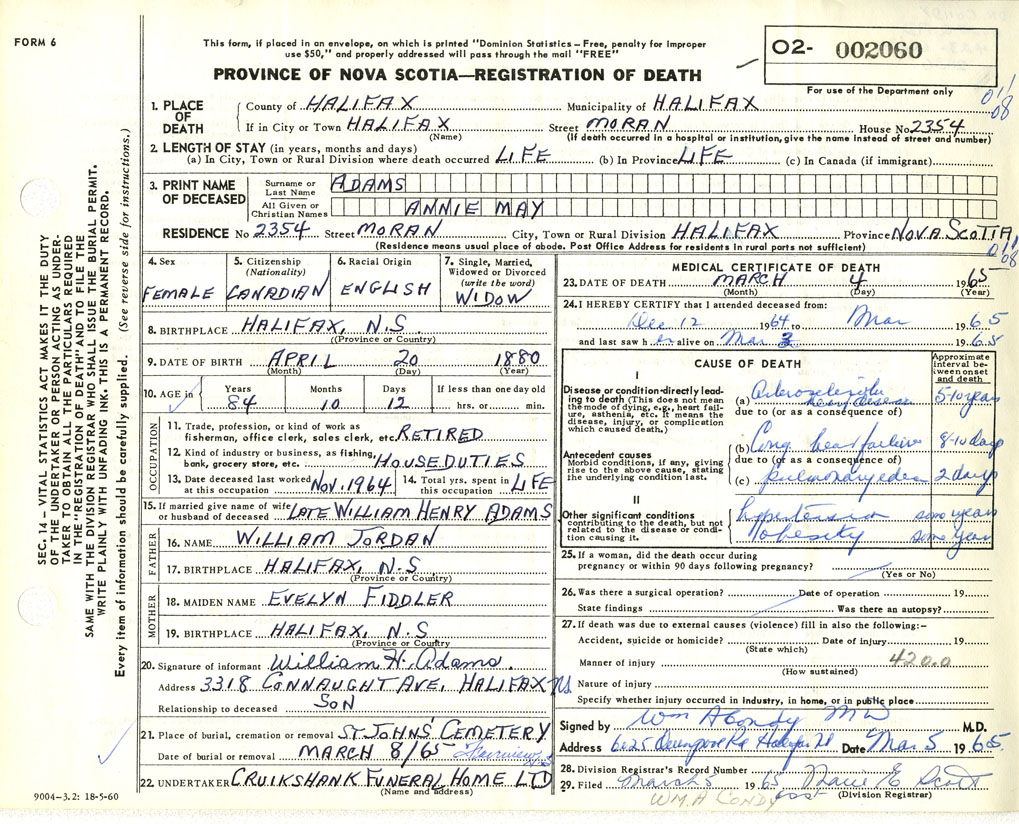 FORM 6
This form, if placed in an envelope, on which is printed "Dominion Statistics – Free, penalty for improper
use $50," and properly addressed will pass through the mail "FREE"
O2- 002060
For use of the Department only
PROVINCE OF NOVA SCOTIA—REGISTRATION OF DEATH
SEC. 14 — VITAL STATISTICS ACT MAKES IT THE DUTY
OF THE UNDERTAKER OR PERSON ACTING AS UNDER-
TAKER TO OBTAIN ALL THE PARTICULARS REQUIRED
IN THE "REGISTRATION OF DEATH" AND TO FILE THE
SAME WITH THE DIVISION REGISTRAR WHO SHALL ISSUE THE BURIAL PERMIT.
WRITE PLAINLY WITH UNFADING INK. THIS IS A PERMANENT RECORD.
Every item of information should be carefully supplied. (See reverse side for instructions.)
1. PLACE OF DEATH
County of HALIFAX Municipality of HALIFAX
If in City or Town HALIFAX Street MORAN House No 2354
(Name) (If death occurred in a hospital or institution, give the name instead of street and number)
2. LENGTH OF STAY (in years, months and days)
(a) In City, Town or Rural Division where death occurred LIFE (b) In Province LIFE (c) In Canada (if immigrant)
3. PRINT NAME OF DECEASED
Surname or Last Name ADAMS
All Given or Christian Names ANNIE MAY
RESIDENCE No 2354 Street MORAN City, Town or Rural Division HALIFAX Province NOVA SCOTIA
(Residence means usual place of abode. Post Office Address for residents in rural parts not sufficient)
4. Sex FEMALE
5. Citizenship (Nationality) CANADIAN
6. Racial Origin ENGLISH
7. Single, Married, Widowed or Divorced (write the word) WIDOW
8. BIRTHPLACE HALIFAX, N.S.
(Province or Country)
9. DATE OF BIRTH APRIL 20 1880
(Month) (Day) (Year)
10. AGE in Years 84 Months 10 Days 12 If less than one day old hrs. or min.
OCCUPATION
11. Trade, profession, or kind of work as
fisherman, office clerk, sales clerk, etc. RETIRED
12. Kind of industry or business, as fishing,
bank, grocery store, etc. HOUSEDUTIES
13. Date deceased last worked at this occupation NOV. 1964
14. Total yrs. spent in this occupation LIFE
15. If married give name of wife or husband of deceased LATE WILLIAM HENRY ADAMS
FATHER
16. NAME WILLIAM JORDAN
17. BIRTHPLACE HALIFAX, N.S
(Province or Country)
MOTHER
18. MAIDEN NAME EVELYN FIDDLER
19. BIRTHPLACE HALIFAX, N.S
(Province or Country)
20. Signature of informant William H. Adams.
Address 3318 CONNAUGHT AVE, HALIFAX NS
Relationship to deceased SON
21. Place of burial, cremation or removal ST. JOHNS' CEMETERY
Date of burial or removal MARCH 8/65 Fairview
22. UNDERTAKER CRUIKSHANK FUNERAL HOME LTD
(Name and address)
9004-3.2: 18-5-60
MEDICAL CERTIFICATE OF DEATH
23. DATE OF DEATH MARCH 4 1965
(Month) (Day) (Year)
24. I HEREBY CERTIFY that I attended deceased from:
Dec 12 1964 to Mar 1965
and last saw her alive on Mar 3 1965
CAUSE OF DEATH
Approximate interval between onset and death
I
Disease or condition directly lead-
ing to death (This does not mean
the mode of dying, e.g., heart fail-
ure, asthenia, etc. It means the
disease, injury, or complication
which caused death.)
(a) Arteriosclerotic heart disease 5-10 years
due to (or as a consequence of)
Antecedent causes
Morbid conditions, if any, giving
rise to the above cause, stating
the underlying condition last.
(b) Cong. heart failure 8-10 days
due to (or as a consequence of)
(c) pulmonary edema 2 days
II
Other significant conditions
contributing to the death, but not
related to the disease or condi-
tion causing it.
hypertension some years
obesity some years
25. If a woman, did the death occur during
pregnancy or within 90 days following pregnancy?
(Yes or No)
26. Was there a surgical operation? Date of operation 19
State findings Was there an autopsy?
27. If death was due to external causes (violence) fill in also the following:–
Accident, suicide or homicide? Date of injury 19
(State which)
Manner of injury 420.0
(How sustained)
Nature of injury
Specify whether injury occurred in industry, in home, or in public place
Signed by Wm A Condy MD M.D.
Address 6225 Halifax Date Mar. 5 1965.
28. Division Registrar's Record Number
29. Filed March 5 1965 Marie E Scott
(Division Registrar)
WM. A CONDY